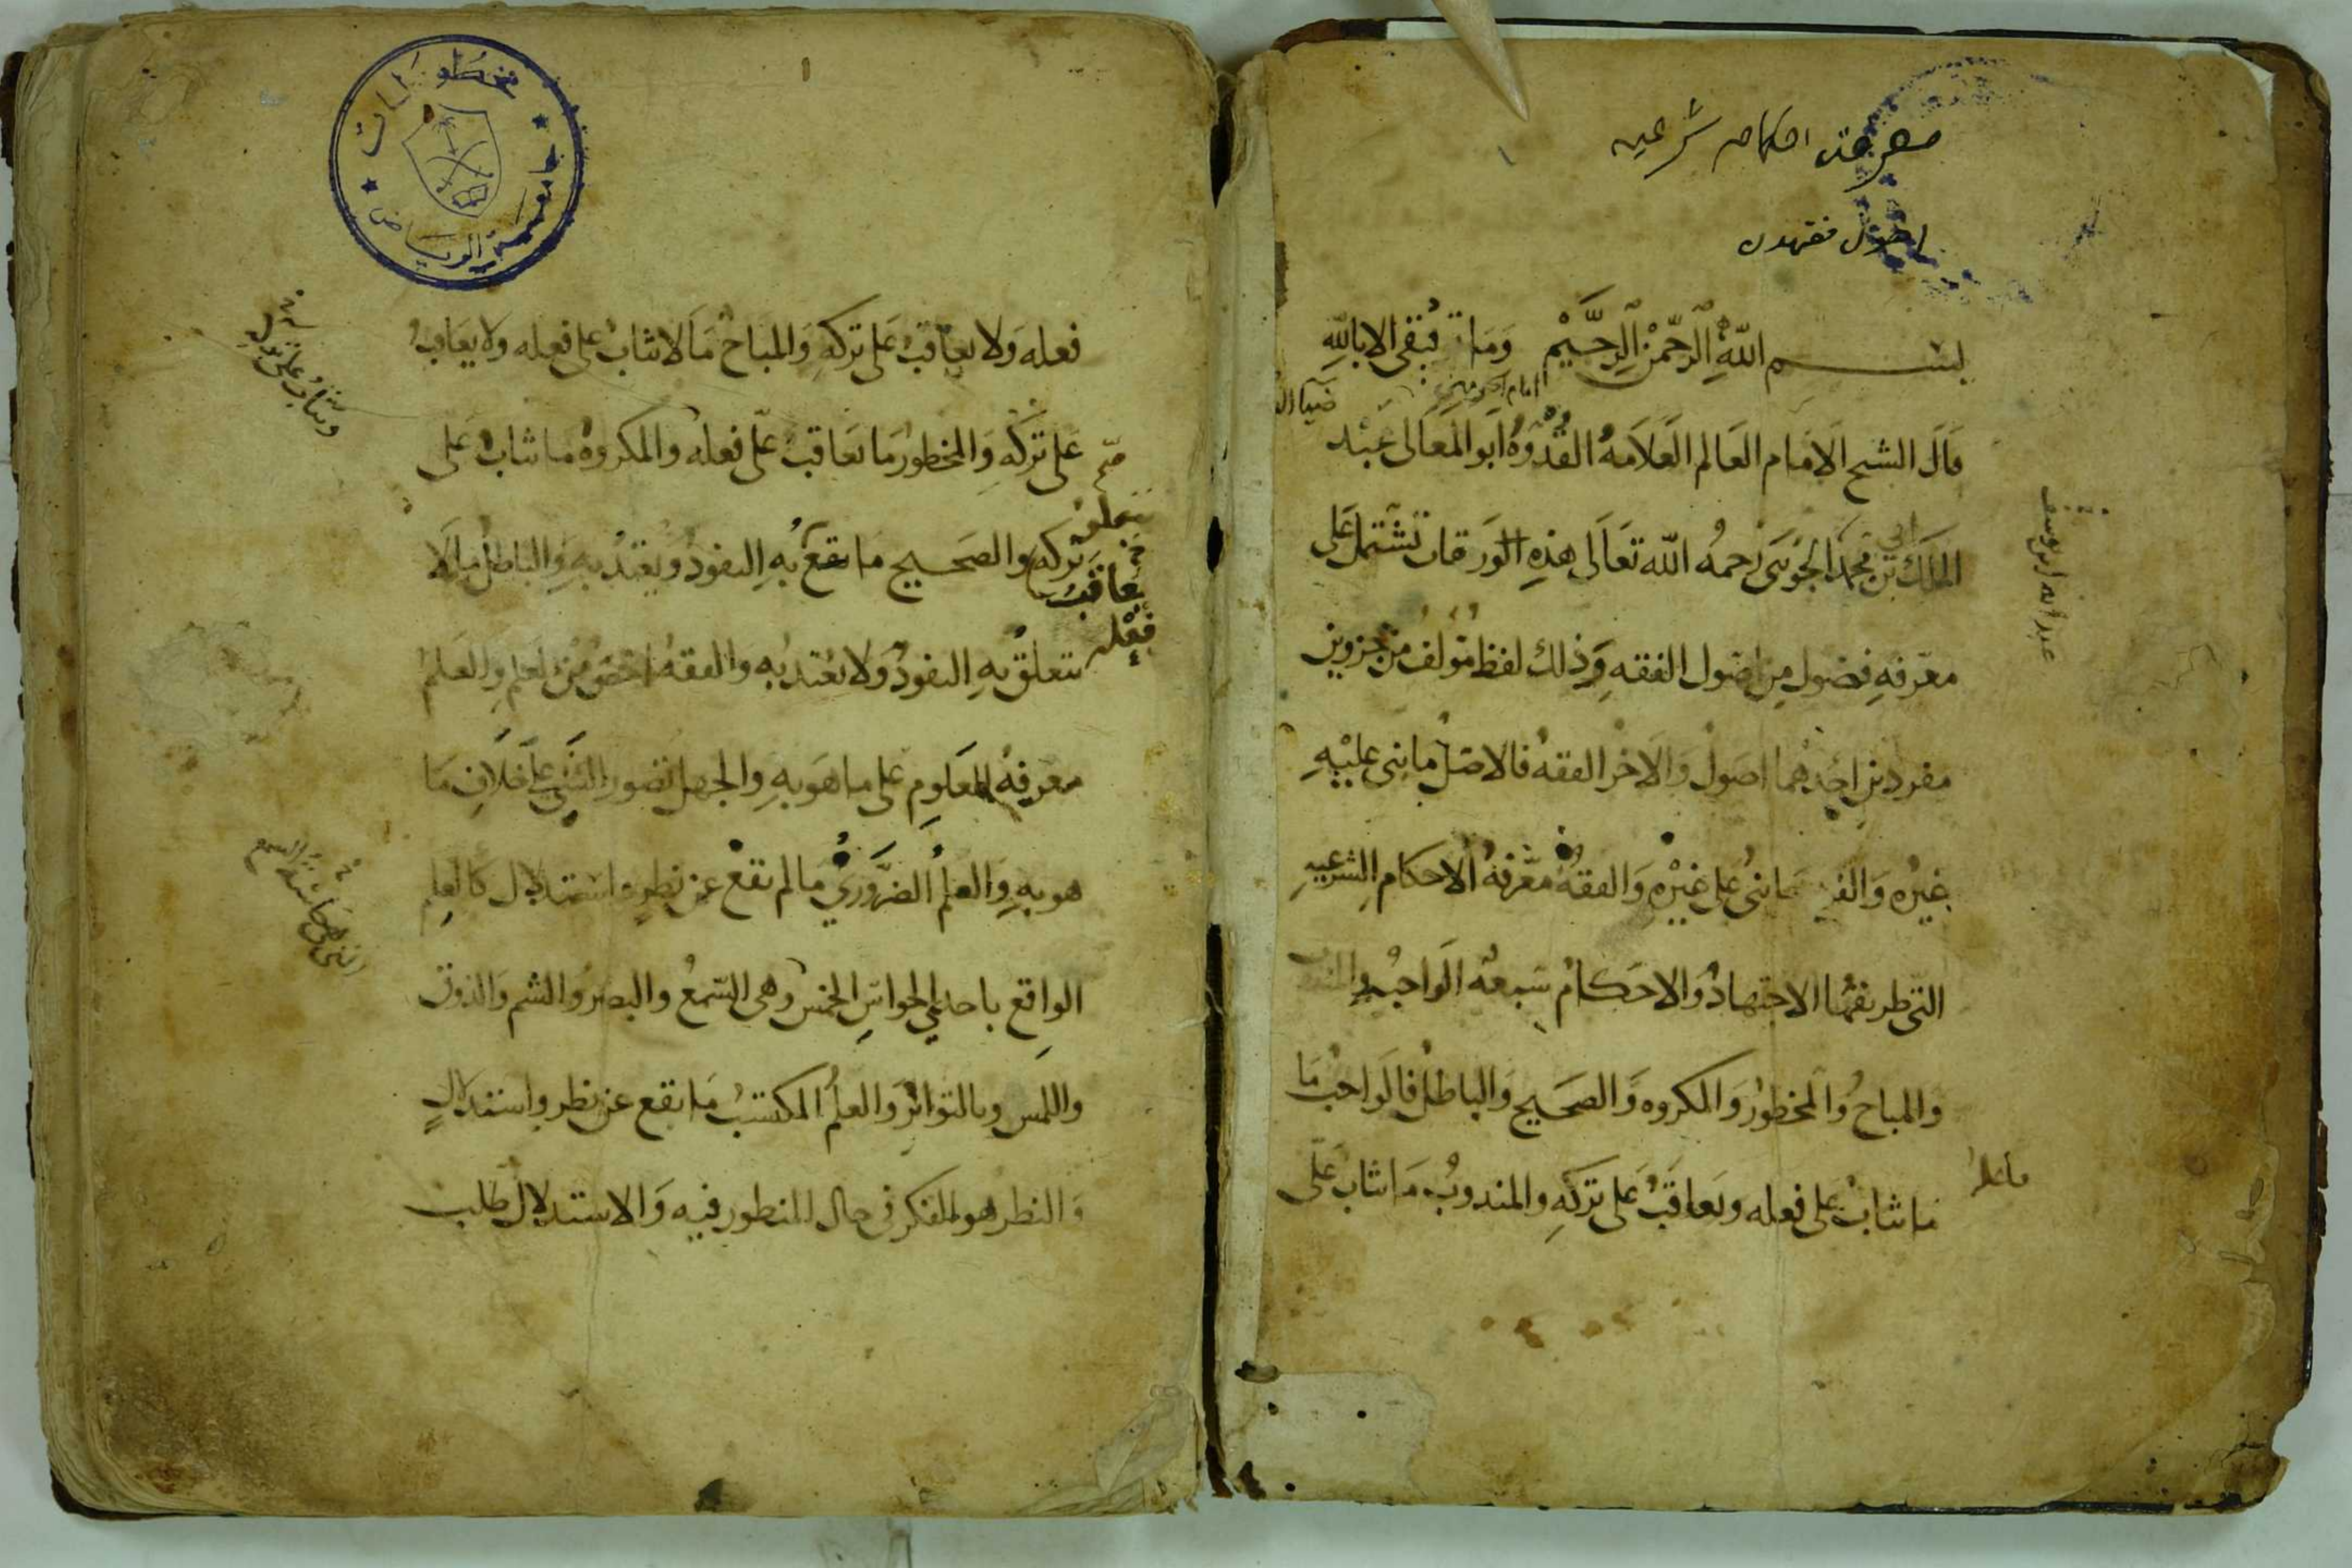 معرفة احكام شرعيه
اصول فقهدن
بسم الله الرحمن الرحيم وما توفيقي الا بالله
امام الحرمين
ضياء الد
قال الشيخ الامام العالم العلامة القدوة ابو المعالى عبد
الملك بن ابي محمد الجويني رحمه الله تعالى هذه الورقات تشتمل على
عبد الله ابن يوسف
معرفة فصول من اصول الفقه وذلك لفظ مؤلف من جزوين
مفردين احدهما اصول والاخر الفقه فالاصل ما بنى عليه
غيره والفرع ما بنى على غيره والفقه معرفة الاحكام الشرعية
التي طريقها الاجتهاد والاحكام سبعة الواجب والمندوب
والمباح والمحظور والمكروه والصحيح والباطل فالواجب ما
ما يثاب على فعله ويعاقب على تركه والمندوب ما يثاب على
مخطوطات
جامعة الرياض
١
فعله ولا يعاقب على تركه والمباح ما لا يثاب على فعله ولا يعاقب
على تركه والمحظور ما يعاقب على فعله والمكروه ما يثاب على
صح
تركه والصحيح ما يقع به النفوذ ويعتد به والباطل ما لا
يتعلق
يعاقب
فعله
يتعلق به النفوذ ولا يعتد به والفقه اخص من العلم والعلم
معرفة المعلوم على ما هو به والجهل تصور الشيء على خلاف ما
هو به والعلم الضروري ما لم يقع عن نظر واستدلال كالعلم
الواقع باحدي الحواس الخمس وهي السمع والبصر والشم والذوق
واللمس وبالتواتر والعلم المكتسب ما يقع عن نظر واستدلال
والنظر هو الفكر في حال المنظور فيه والاستدلال طلب